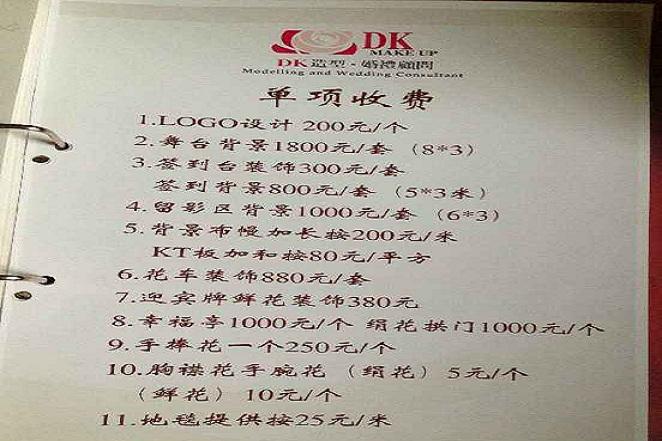 DK
MAKE UP
DK 造型·婚禮顧問
Modelling and Wedding Consultant
单项收费
1.LOGO设计 200元/个
2.舞台背景1800元/套（8*3）
3.签到台装饰300元/套
签到背景800元/套（5*3米）
4.留影区背景1000元/套（6*3）
5.背景布幔加长按200元/米
KT板加和按80元/平方
6.花车装饰880元/套
7.迎宾牌鲜花装饰380元
8.幸福亭1000元/个 绢花拱门1000元/个
9.手捧花一个250元/个
10.胸襟花手腕花（绢花）5元/个
（鲜花）10元/个
11.地毯提供按25元/米